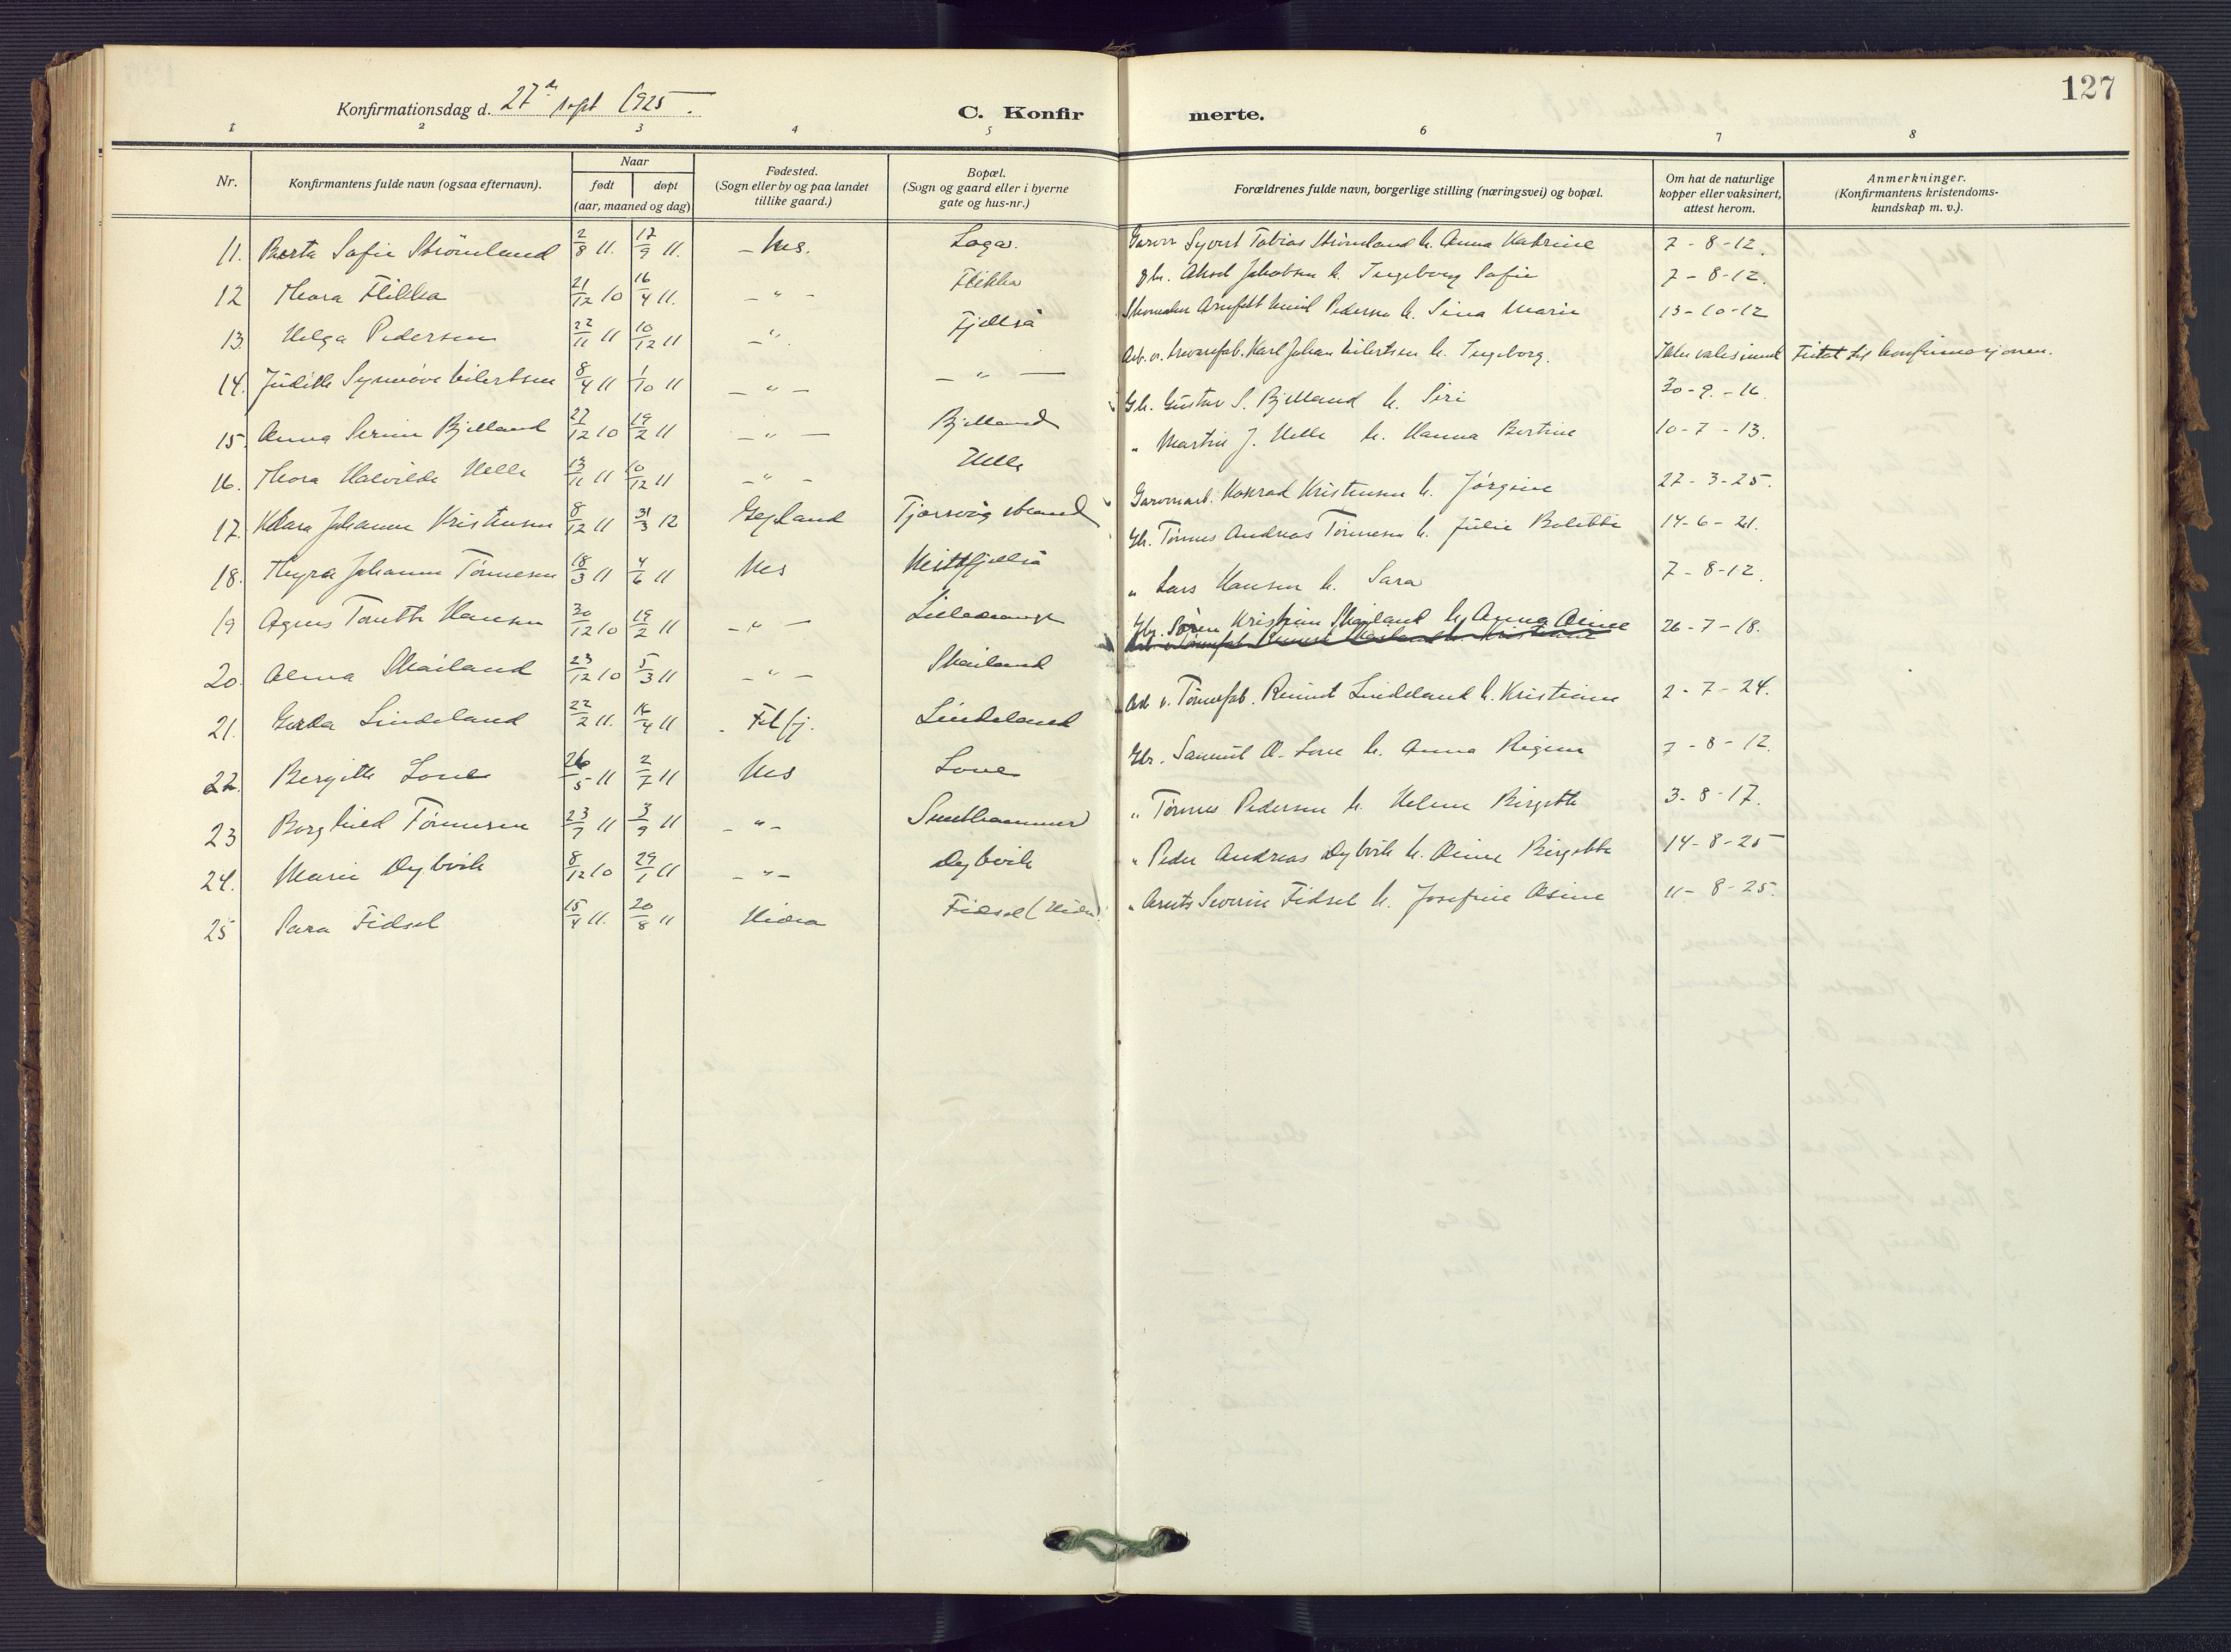 127
Konfirmationsdag d. 27de sept 1925.
C. Konfirmerte.
1 2 3 4 5 6 7 8
Nr. Konfirmantens fulde navn (ogsaa efternavn). Naar født døpt (aar, maaned og dag) Fødested. (Sogn eller by og paa landet tillike gaard.) Bopæl. (Sogn og gaard eller i byerne gate og hus-nr.) Forældrenes fulde navn, borgerlige stilling (næringsvei) og bopæl. Om hat de naturlige kopper eller vaksinert, attest herom. Anmerkninger. (Konfirmantens kristendoms-kundskap m. v.).
11. Berta Sofie Strømland 2/8 11. 17/9 11. Nes. Loga. Garver Syvert Tobias Strømland h. Anna Katrine 7-8-12.
12 Thora Flikka 21/12 10 16/4 11. – " – Flikka Gbr. Aksel Jakobsen h. Ingeborg Sofie 7-8-12.
13. Helga Pedersen 22/11 11 10/12 11 – " Fjellså Skomaker Arnfelt Emil Pedersen h. Sina Marie 13-10-12
14. Judith Synnøve Eilertsen 8/4 11 1/10 11 – " – – " – Arb. v. Karl Johan Eilertsen h. Ingeborg. Ikke vaksinert Fritat til konfirmasjonen.
15. Anna Serine Bjelland 27/12 10 19/2 11 – " – Bjelland Gbr. Gustav S. Bjelland h. Siri 30-9-16.
16. Thora Halvilde Helle 13/11 11 10/12 11 – " – Helle " Martin J. Helle h. Hanna Bertine 10-7-13.
17. Klara Johanne Kristensen 8/12 11 31/3 12 Gyland Tjørsvåg strand Garveriarb. Konrad Kristensen h. Jørgine 22-3-25.
18. Thyra Johanne Tønnesen 18/3 11 4/6 11 Nes Gbr. Tønnes Andreas Tønnesen h. Julie Bolette 14-6-21.
19 Agnes Tonette Hansen 30/12 10 19/2 11 – " – " Lars Hansen h. Sara 7-8-12.
20. Alma Skailand 23/12 10 5/3 11 – " – Skailand Gbr. Søren Kristian Skailand h. Anna Oline 26-7-18.
21. Gerda Lindeland 22/2 11. 16/4 11 Fl.fj. Lindeland Arb. v. Tønnefab. Reinert Lindeland h. Kristiane 2-7-24.
22. Bergitte Lone 26/5 11 2/7 11 Nes Lone Gbr. Samuel A. Lone h. Anna Regine 7-8-12.
23 Borghild Tønnesen 23/7 11 3/9 11 – " – Sundhammer " Tønnes Pedersen h. Helene Birgitte 3-8-17.
24. Marie Dybvik 8/12 10 29/1 11 – " – Dybvik " Peder Andreas Dybvik h. Oline Birgitte 14-8-25
25 Sara Fidsel 15/4 11. 20/8 11 Hidra Fidsel (Hidra). " Arnts Severin Fidsel h. Josefine Asine 11-8-25.